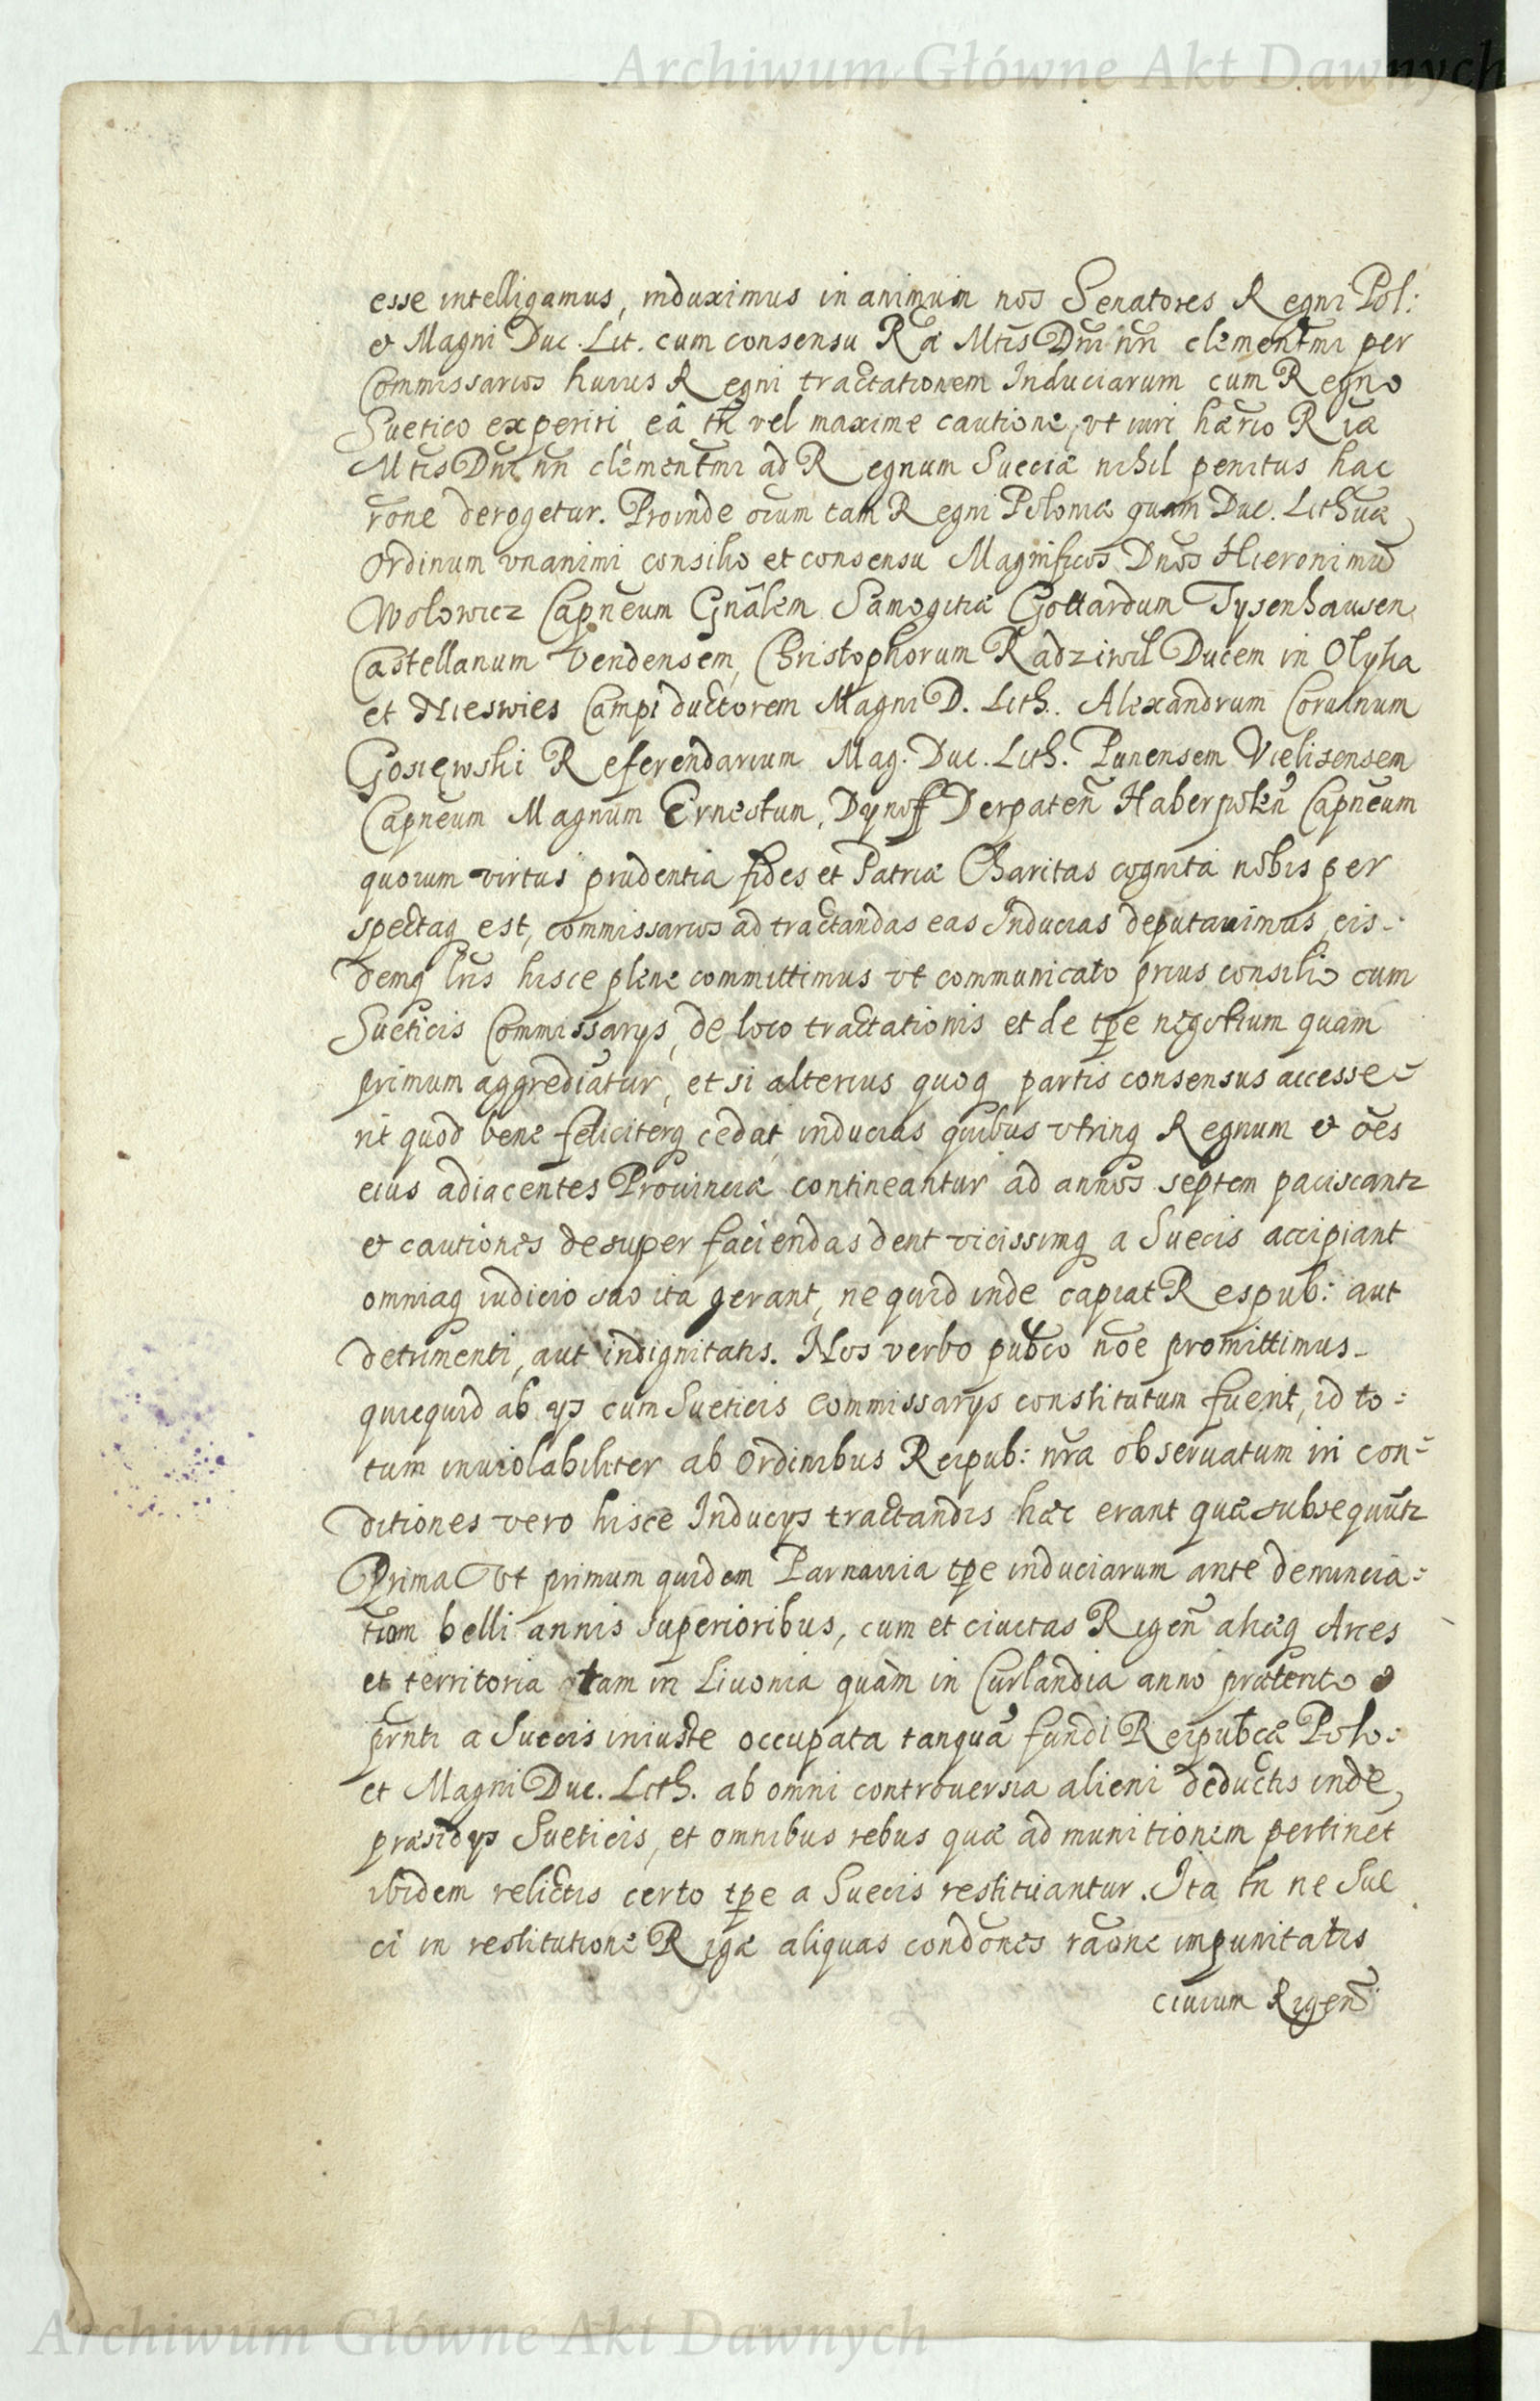 Archiwum Główne Akt Dawnych
esse intelligamus, induximus in animum nos Senatores Regni Pol:
& Magni Duc. Lit. cum consensu Ræ Mtis Dni nri clementmi per
Commissarios huius Regni tractationem Induciarum cum Regno
Suetico experiri eâ tn vel maxime cautione, vt iuri hærio Riæ
Mtis Dni nri clementmi ad Regnum Sueciæ nihil penitus hac
rone derogetur. Proinde oium tam Regni Poloniæ quam Duc. Lithuæ
Ordinum vnanimi consilio et consensu Magnificos Dnos Hieronimū
Wolowicz Capneum Gnâlem Samogitiæ Gottardum Tysenhausen
Castellanum Vendensem, Christophorum Radziwil Ducem in Olyka
et Nieswies Campi ductorem Magni D. Lith. Alexandrum Coruinum
Gosięwski Referendarium Mag. Duc. Lith. Punensem Vielisensem
Capneum Magnum Ernestum, Dynoff Derpaten Haberpolen Capneum
quorum virtus prudentia fides et Patriæ Charitas cognita nobis per
spectaq est, commissarios ad tractandas eas Inducias deputauimus, eis-
demq lris hisce plene committimus vt communicato prius consilio cum
Sueticis Commissarys, de loco tractationis et de tpe negotium quam
primum aggrediatur, et si alterius quoq partis consensus accesse-
rit quod bene feliciterq cedat, inducias quibus vtrinq Regnum & oes
eius adiacentes Prouinciæ contineantur ad annos septem paciscantr
& cautiones desuper faciendas dent vicissimq a Suecis accipiant
omniaq iudicio suo ita gerant, ne quid inde capiat Respub: aut
detrimenti, aut indignitatis. Nos verbo pubco noe promittimus-
quicquid ab ys cum Sueticis Commissarys constitutum fuerit, id to-
tum inuiolabiliter ab Ordinibus Reipub: nræ obseruatum iri con-
ditiones vero hisce Inducys tractandis hæc erant quæ subsequūtr
Prima Vt primum quidem Parnauia tpe induciarum ante denuncia-
tiom belli annis superioribus, cum et ciuitas Rigen aliæq Arces
et territoria tam in Liuonia quàm in Curlandia anno præterito &
prnti a Suecis iniuste occupata tanquā fundi Reipubcæ Polo:
et Magni Duc. Lith. ab omni controuersia alieni deductis inde,
præsidys Sueticis, et omnibus rebus quæ ad munitionem pertinēt
ibidem relictis certo tpe a Suecis restituantur. Ita tn ne Sue
ci in restitutione Rigæ aliquas condones raone impunitatis
ciuium Rigen
Archiwum Główne Akt Dawnych